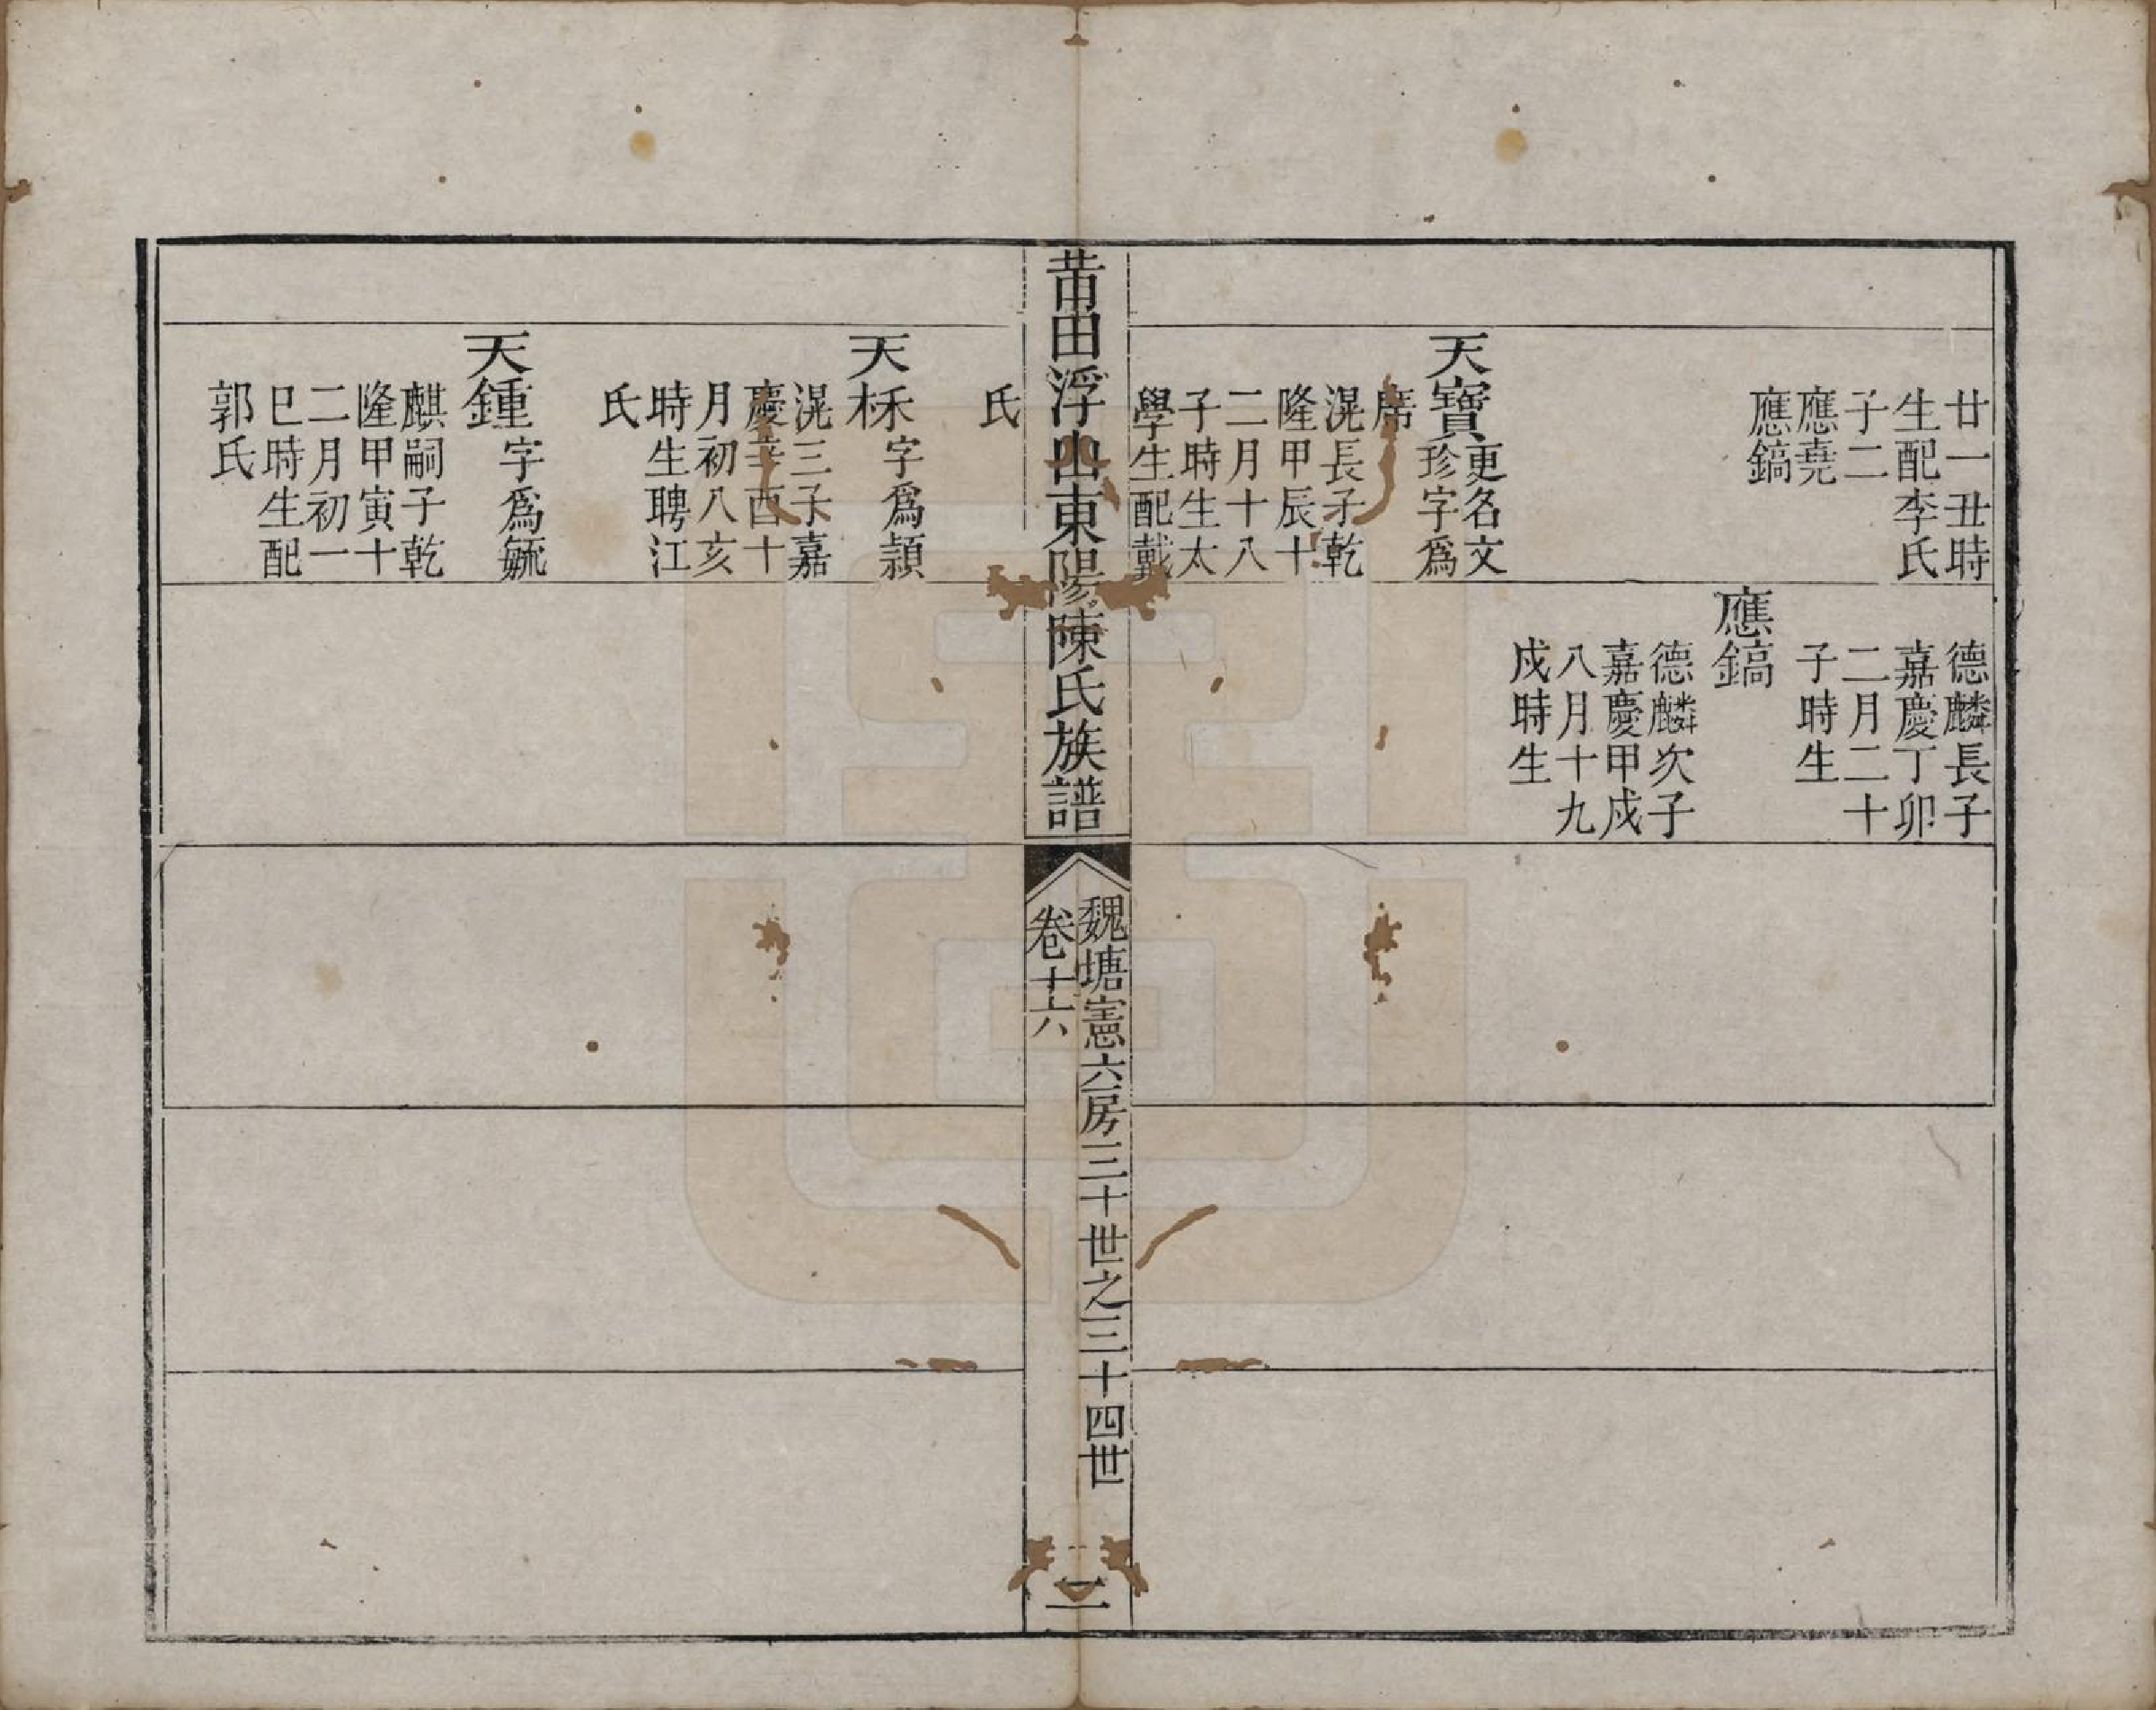 廿一丑時
生配李氏
子二
應堯
應鎬
天寶更名文
珍字爲
席
滉長子乾
隆甲辰十
二月十八
子時生太
學生配戴
德麟長子
嘉慶丁卯
二月二十
子時生
應鎬
德麟次子
嘉慶甲戍
八月十九
戍時生
莆田浮山東陽陳氏族譜
魏塘憲六房三十世之三十四世
卷十六
二
氏
天秝字爲穎
滉三子嘉
慶辛酉十
月初八亥
時生聘江
氏
天鍾字爲毓
麒嗣子乾
隆甲寅十
二月初一
巳時生配
郭氏